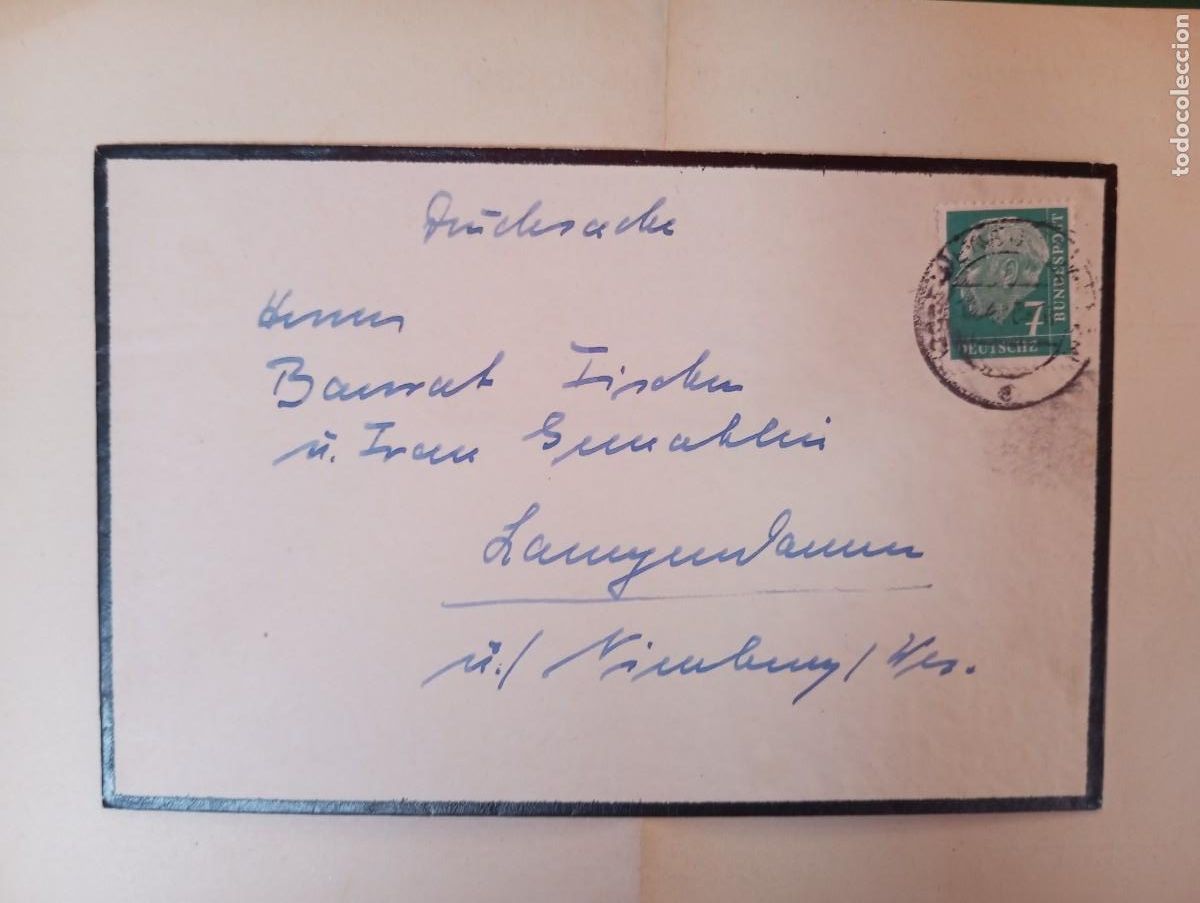 todocoleccion
Drucksache
7
BUNDESPOST
DEUTSCHE
Herrn
Baurat Fischer
u. Frau Gemahlin
Langendamm
ü./ Nienburg/Wes.